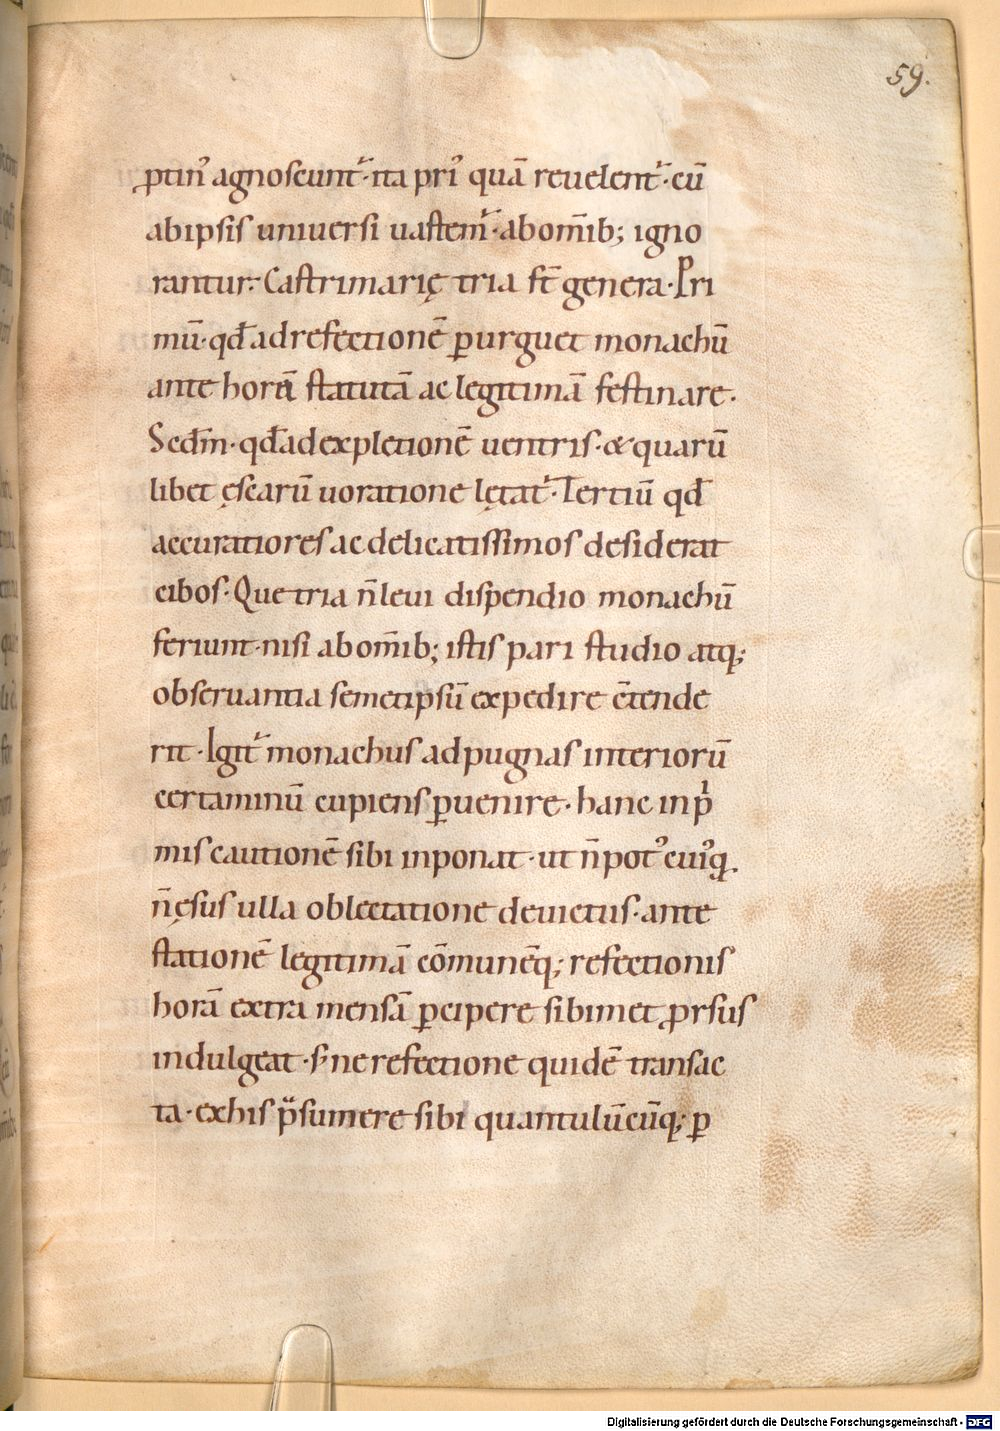 59.
ꝓtin᷒ agnoscunt᷑·ita pri᷒ quā reuelent᷑·cū
abipsis uniuersi uastem᷑·abom̄ib; igno
rantur. Castrimarię tria st̄ genera·Pri
mū·qđ ad refectionē ꝑurguet monachū
ante horā statutā ac legitimā festinare.
Secđm·qđ ad expletionē uentris·& quarū
libet ęscarū uoratione lętat᷑·Tertiū qđ
accuratiores ac delicatissimos desiderat
cibos·Que tria n̄ leui dispendio monachū
feriunt·nisi abom̄ib; istis pari studio atq;
obseruantia semetipsū expedire c̄tende
rit·Igit᷑ monachus ad pugnas interiorū
certaminū cupiens ꝑuenire·hanc inpͥ
mis cautionē sibi inponat·ut n̄ pot᷒ cuiͥq.
n̄ ęsus ulla oblectatione deuictus·ante
stationē legitimā cōmunēq; refectionis
horā extra mensā ꝑcipere sibimet ꝓrsus
indulgeat·s; ne refectione quidē transac
ta·exhis p̄sumere sibi quantulūcūq; ꝑ
Digitalisierung gefördert durch die Deutsche Forschungsgemeinschaft - DFG